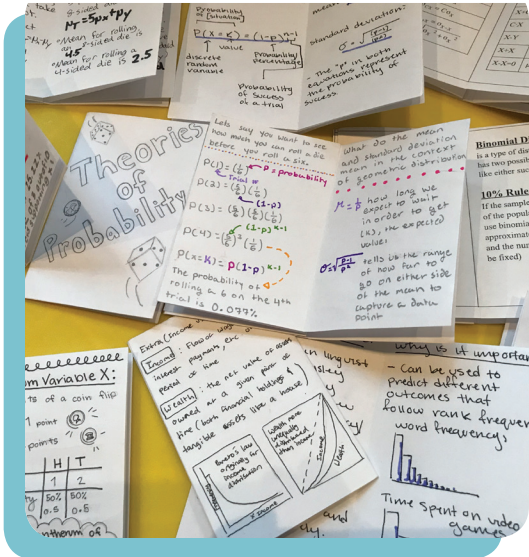 8-sided die
take
NT = 5px + py
Mean for rolling
an 8-sided die is
4.5
Mean for rolling a
4-sided die is 2.5
Probability
of [situation]
P(X=K) = (1-p)^K-1
value
probability/
percentage
discrete
random
variable
probability
of success
of a trial
standard deviation:
- The "p" in both
equations represent
the probability of
success
Theories
of
Probability
Lets say you want to see
how much you can roll a die
before you roll a six.
P(1) = (1/6) ← P = probability
← Trial #
P(2) = (5/6)(1/6)
(1-p)
P(3) = (5/6)(5/6)(1/6)
(1-p)^K-1
P(4) = (5/6)^3 (1/6)
P(x=K) = P(1-p)^K-1
The probability of
rolling a 6 on the 4th
trial is 0.097%
What do the mean
and standard deviation
mean in the context
of geometric distribution
M = 1/p how long we
expect to wait
in order to get
(K), the expected
value.
tells us the range
of how far to
go on either side
of the mean to
capture a data
point
Binomial Di
is a type of dis
has two possi
like either suc
10% Rule
If the sample
of the popula
use binomia
approximat
and the num
be fixed)
om Variable X:
ts of a coin flip
1 point
points
H T
1 2
50% 50%
0.5 0.5
Extra (Income
Income: Flow of
interest payments, etc
period of time
Wealth: the net value of assets
owned at a given point of
time (both financial holdings &
tangible assets like a house
Pareto's law
originally for
income
distribution
Wealth more
unequally
distributed
than income
Income
Wealth
Income
linguist
why is it importan
- Can be used to
predict different
outcomes that
follow rank frequen
word frequency
Time spent on video
games
and